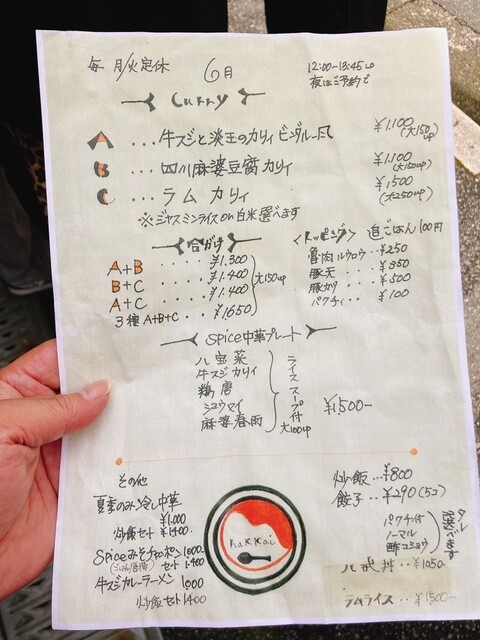 毎月/火定休
6月
12:00-13:45LO
夜はご予約で
Curry
A ...牛スジと淡玉のカリィビンダルー風 ¥1,100
(大150up)
B ...四川麻婆豆腐カリィ ¥1,100
(大150up)
C ...ラムカリィ ¥1500
(大250up)
※ジャスミンライスor白米選べます
合がけ
A+B ....¥1.300
B+C ....¥1.400
A+C ....¥1.400
3種A+B+C...¥1.650
大150up
<トッピング> 追ごはん100円
魯肉ルウロウ..¥250
豚天...¥350
豚カツ...¥500
パクチィ..¥100
Spice中華プレート
八宝菜
牛スジカリィ
鶏唐
シュウマイ
麻婆春雨
ライススープ付
大100up
¥1,500-
その他
夏季のみ冷し中華
¥1.000
炒飯セット ¥1400
Spiceみそチャンポン 1000
セット 1.400
牛スジカレーラーメン 1000
炒飯セット 1400
hakkai
炒飯...¥800
餃子..¥290(5コ)
パクチィ付
ノーマル
酢コショウ
タレ選べます
八戒丼..¥1050
ラムライス...¥1500-